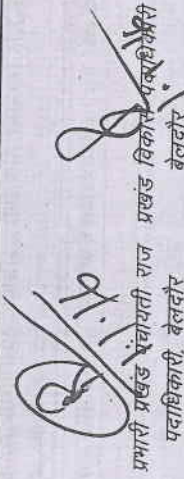 प्रभारी प्रखंड पंचायती राज
पदाधिकारी, बेलदौर
प्रखंड विकास पदाधिकारी
बेलदौर